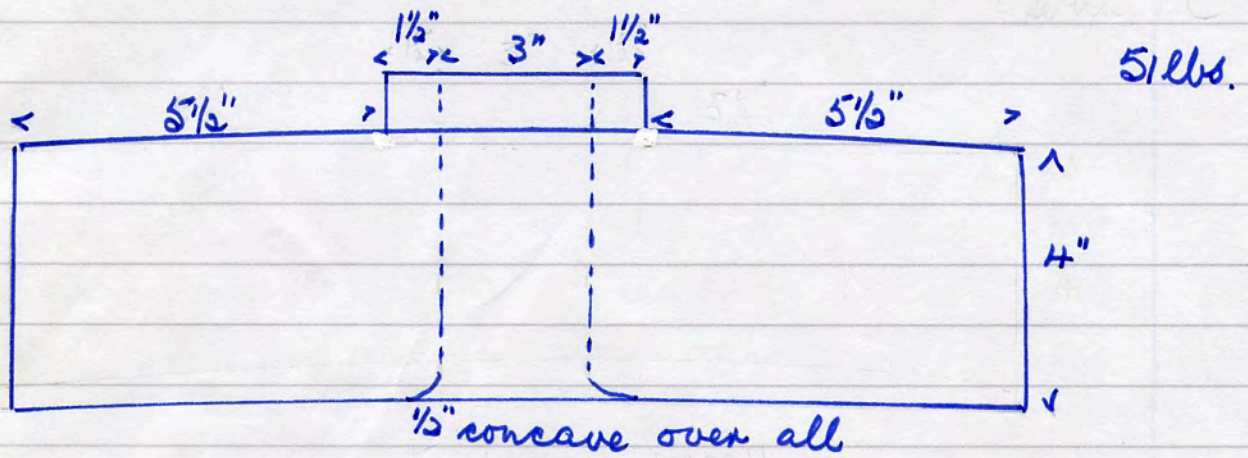 1½" 3" 1½"
51lbs.
5½" 5½"
4"
½" concave over all